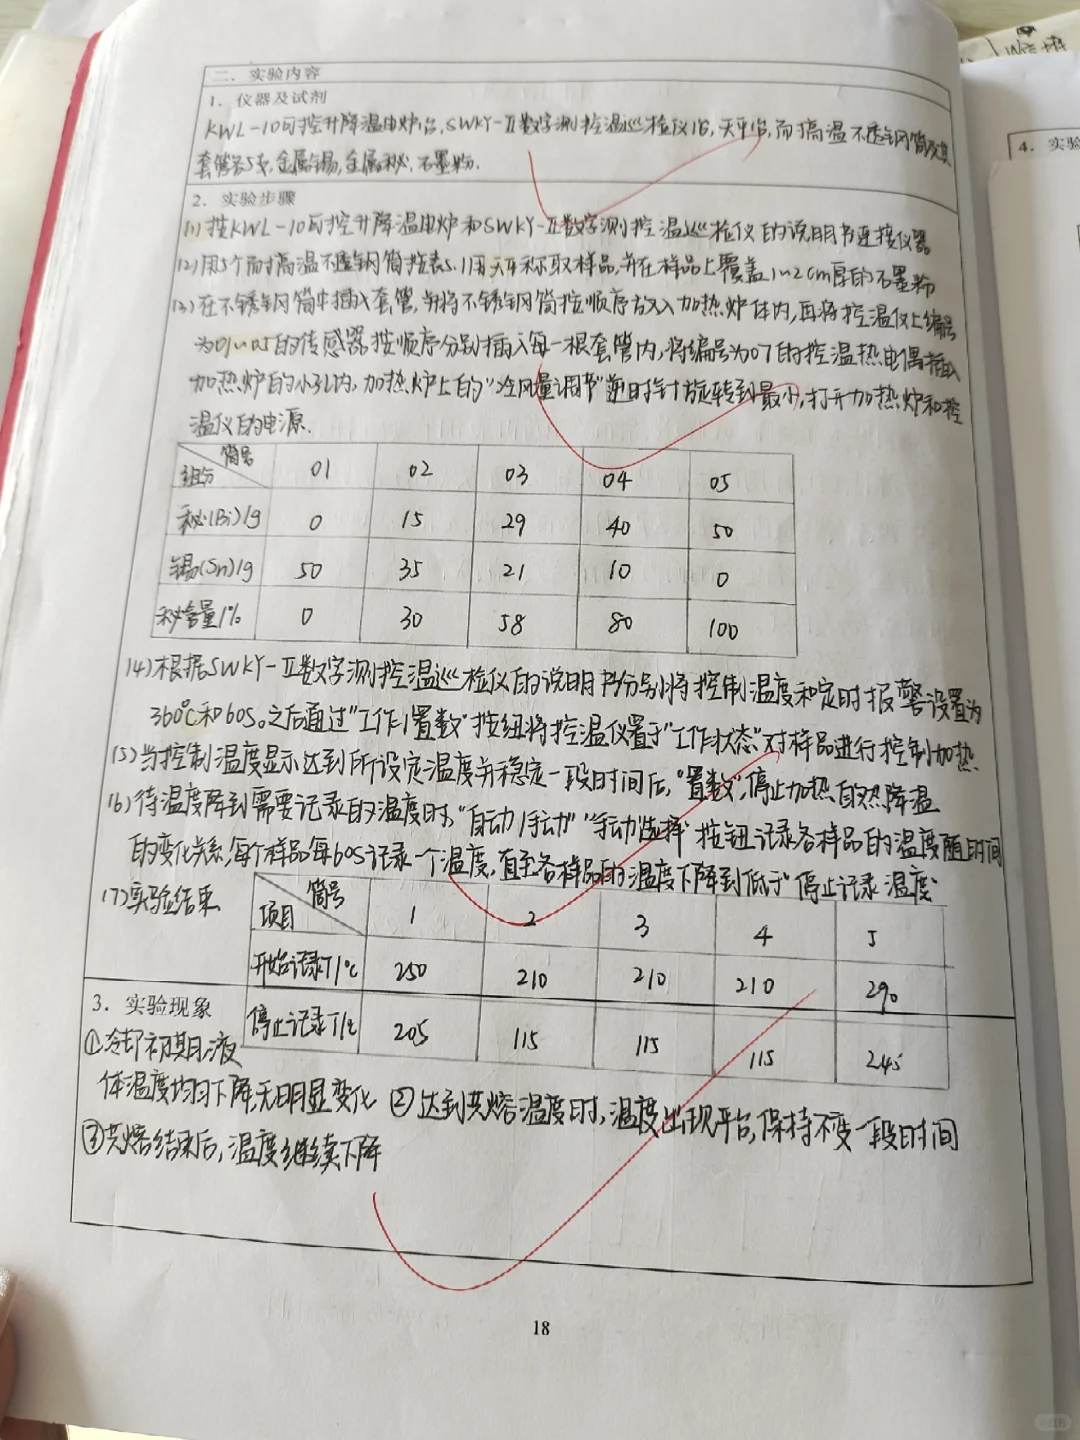 二. 实验内容
1. 仪器及试剂
KWL-10可控升降温电炉1台, SWKY-Ⅱ数字测控温巡检仪1台, 天平1台, 耐高温不透钢筒及其
套管各5支, 金属锡, 金属秘, 石墨粉.
2. 实验步骤
(1) 按KWL-10可控升降温电炉和SWKY-Ⅱ数字测控温巡检仪的说明书连接仪器
(2) 用5个耐高温不透钢筒按表5.1用天平称取样品, 并在样品上覆盖1~2cm厚的石墨粉
(3) 在不锈钢筒中插入套管, 并将不锈钢筒按顺序放入加热炉体内, 再将控温仪上编号
为01~05的传感器按顺序分别插入每一根套管内, 将编号为07的控温热电偶插入
加热炉的小孔内, 加热炉上的"冷风量调节"逆时针旋转到最小, 打开加热炉和控
温仪的电源.
筒号 组分 01 02 03 04 05
秘(Bi)/g 0 15 29 40 50
锡(Sn)/g 50 35 21 10 0
秘含量/% 0 30 58 80 100
(4) 根据SWKY-Ⅱ数字测控温巡检仪的说明书分别将控制温度和定时报警设置为
360℃和60S。之后通过"工作/置数"按钮将控温仪置于"工作状态"对样品进行控制加热
(5) 当控制温度显示达到所设定温度并稳定一段时间后, "置数", 停止加热自然降温
(6) 待温度降到需要记录的温度时, "自动/手动" "手动选择"按钮记录各样品的温度随时间
的变化关系, 每个样品每60S记录一个温度, 直至各样品的温度下降到低于"停止记录温度"
(7) 实验结果
筒号 项目 1 2 3 4 5
开始记录T/℃ 250 210 210 210 290
停止记录T/℃ 205 115 115 115 245
3. 实验现象
①冷却初期, 液
体温度均匀下降无明显变化 ②达到共熔温度时, 温度出现平台, 保持不变一段时间
③共熔结束后, 温度继续下降
18
4. 实验